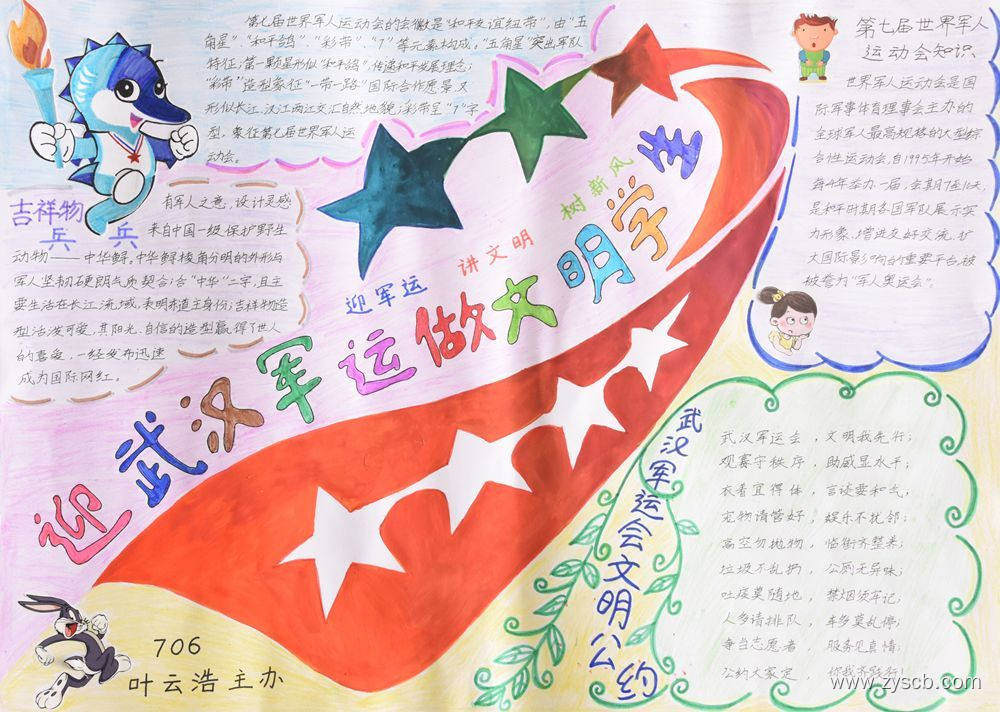 第七届世界军人运动会的会徽是"和平友谊纽带",由"五
角星"、"和平鸽"、"彩带"、"7"等元素构成,"五角星"突出军队
特征;第一颗星形似"和平鸽",传递和平发展理念;
"彩带"造型象征"一带一路"国际合作愿景,又
形似长江、汉江两江交汇自然地貌;彩带呈"7"字
型,象征第七届世界军人运
动会。
吉祥物
兵兵
有军人之意,设计灵感
来自中国一级保护野生
动物——中华鲟。中华鲟棱角分明的外形与
军人坚韧硬朗气质契合;含"中华"二字,且主
要生活在长江流域,表明东道主身份;吉祥物造
型活泼可爱,其阳光、自信的造型赢得了世人
的喜爱,一经发布迅速
成为国际网红。
第七届世界军人
运动会知识
世界军人运动会是国
际军事体育理事会主办的
全球军人最高规格的大型综
合性运动会,自1995年开始
每4年举办一届,会期7至10天,
是和平时期各国军队展示实
力形象、增进友好交流、扩
大国际影响的重要平台,被
被誉为"军人奥运会"。
树新风
讲文明
迎军运
迎武汉军运做文明学生
武汉军运会文明公约
武汉军运会,文明我先行;
观赛守秩序,助威显水平;
衣着宜得体,言谈要和气,
宠物请管好,娱乐不扰邻;
高空勿抛物,临街齐整来;
垃圾不乱扔,公厕无异味;
吐痰莫随地,禁烟须牢记;
人多请排队,车多莫乱停;
争当志愿者,服务见真情;
公约大家定,你我齐践行!
706
叶云浩主办
www.zyscb.com